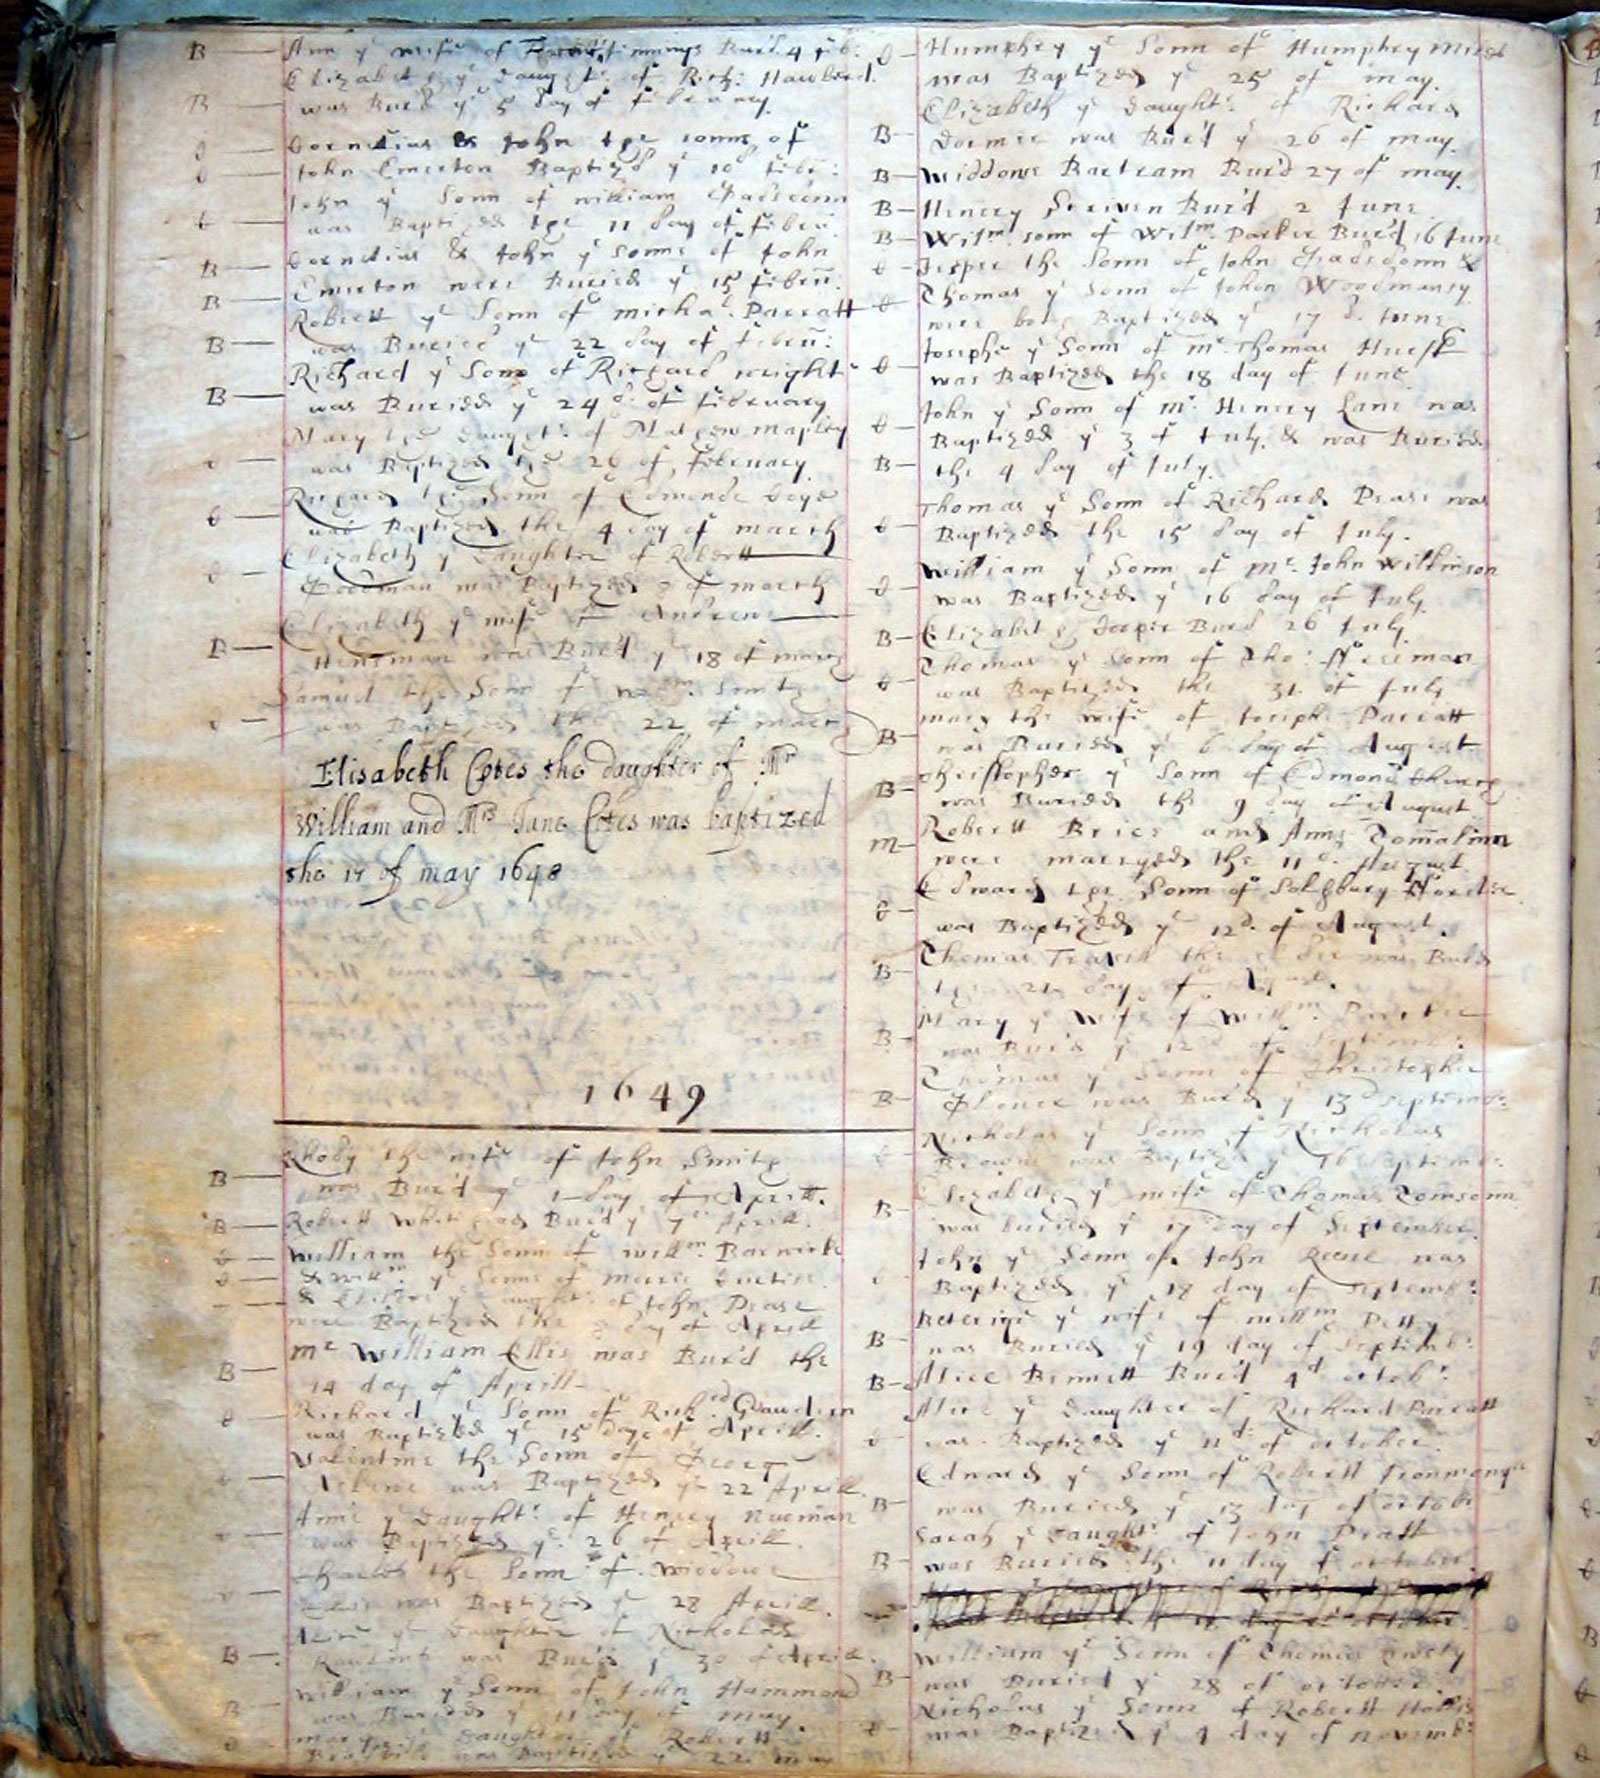 B Ann yᵉ wife of Timmings Bur'd 4 feb:
Elizabeth yᵉ daught: of Rich: Hawkerd.
B was Bur'd yᵉ 5 day of february.
Cornelius & John the sonns of
John Emerton Baptizd yᵉ 10 febr:
John yᵉ Sonn of william
was Baptized the 11 day of febru:
Cornelius & John yᵉ sonns of John
B Emerton were Buried yᵉ 15 febru:
B Robertt yᵉ Sonn of michal. Parratt
B was Buried yᵉ 22 day of febru:
Richard yᵉ Sonn of Richard wright
B was Buried yᵉ 24 of february
Mary the daught: of Mathew mapley
was Baptized the 26 of february.
Richard the Sonn of Edmonde
was Baptized the 4 day of march
Elizabeth yᵉ Daughter of Robertt
was Baptized 8 of march
Elizabeth yᵉ wife of Andrew
B Hensman was Bur'd yᵉ 18 of march
Samuel the Sonn of Smith
was Baptized the 22 of march
Elisabeth Cotes the daughter of Mʳ
William and Mʳˢ Jane Cotes was baptized
the 17 of may 1648
1649
Rhody the wife of John Smith
B was Bur'd yᵉ 1 day of Aprill.
B Robertt Whitehead Bur'd yᵉ 7 Aprill.
William the Sonn of willᵐ. Barwick
& willᵐ. yᵉ Sonne of
& yᵉ daught: of John Pease
were Baptized the 8 day of Aprill
mʳ William Ellis was Bur'd the
B 14 day of Aprill
Richard yᵉ Sonn of Rich
was Baptized yᵉ 15 day of Aprill.
Valentine the Sonn of George
was Baptized yᵉ 22 Aprill.
Anne yᵉ Daught: of Henery Newman
was Baptized yᵉ. 26 of Aprill.
Charles the Sonn of widdowe
was Baptized yᵉ 28 Aprill.
Alice yᵉ Daughter of Nickolas
B was Bur'd yᵉ 30 of Aprill.
William yᵉ Sonn of John Hammond
B was Buried yᵉ 11 day of may.
mary yᵉ daughter of Robertt
was Baptized yᵉ 22 may
Humphry yᵉ Sonn of Humphry
was Baptized yᵉ 25 of may.
Elizabeth yᵉ daught: of Richard
B Dormer was Bur'd yᵉ 26 of may.
B Widdowe Bartram Bur'd 27 of may.
B Henery Scriven Bur'd 2 June
B Wilᵐ. sonn of Wilᵐ. Parker Bur'd 16 June
Jesper the Sonn of John &
Thomas yᵉ Sonn of John Woodmansy
were both Baptized yᵉ 17 June
Josephe yᵉ Sonn of mʳ. Thomas Hurst
was Baptized the 18 day of June.
John yᵉ Sonn of mʳ. Henery Lane was
Baptized yᵉ 3 of July. & was Buried
B the 4 day of July.
Thomas yᵉ Sonn of Richard Pease was
Baptized the 15 day of July.
William yᵉ Sonn of mʳ. John Wilkinson
was Baptized yᵉ 16 day of July.
B Elizabeth Bur'd 26 July.
Thomas yᵉ Sonn of Tho: ffreeman
was Baptized the 31 of July
mary the wife of Joseph Parratt
B was Buried yᵉ 6 day of August.
Christopher yᵉ Sonn of Edmond
B was Buried the 9 day of August
Robertt Brice and Anne Tomalinn
m were marryed the 11 August.
Edward the Sonn of Salsbury
was Baptized yᵉ 12ᵈ. of August.
Thomas the elder was Bur'd
B the 21 day of August.
Mary yᵉ Wife of Willᵐ.
B was Bur'd yᵉ 12 of Septemb:
Thomas yᵉ Sonn of Christopher
B was Bur'd yᵉ 13 Septemb:
Nicholas yᵉ Sonn of Nickolas
Browne was Baptizd yᵉ 16 Septemb:
Elizabeth yᵉ wife of Thomas Tomsonn
B was buried yᵉ 17 day of September.
John yᵉ Sonn of John Reeve was
Baptized yᵉ 18 day of Septemb:
yᵉ wife of willᵐ Petty
B was Buried yᵉ 19 day of Septemb:
B Alice Bennett Bur'd 4ᵈ octob:
Alice yᵉ daughter of Richard Parratt
was Baptized yᵉ 11ᵈ. of october.
Edward yᵉ Sonn of Robertt Ironmonger
B was Buried yᵉ 13 day of octob:
Sarah yᵉ daught: of John Pratt
B was Buried the 11 day of october.
William yᵉ Sonn of Thomas
B was Buried yᵉ 28 of october.
Nicholas yᵉ Sonn of Robertt
was Baptized yᵉ 4 day of novemb: